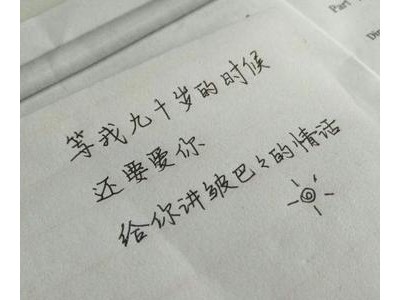 等我九十岁的时候
还要爱你
给你讲皱巴々的情话
Part
Di